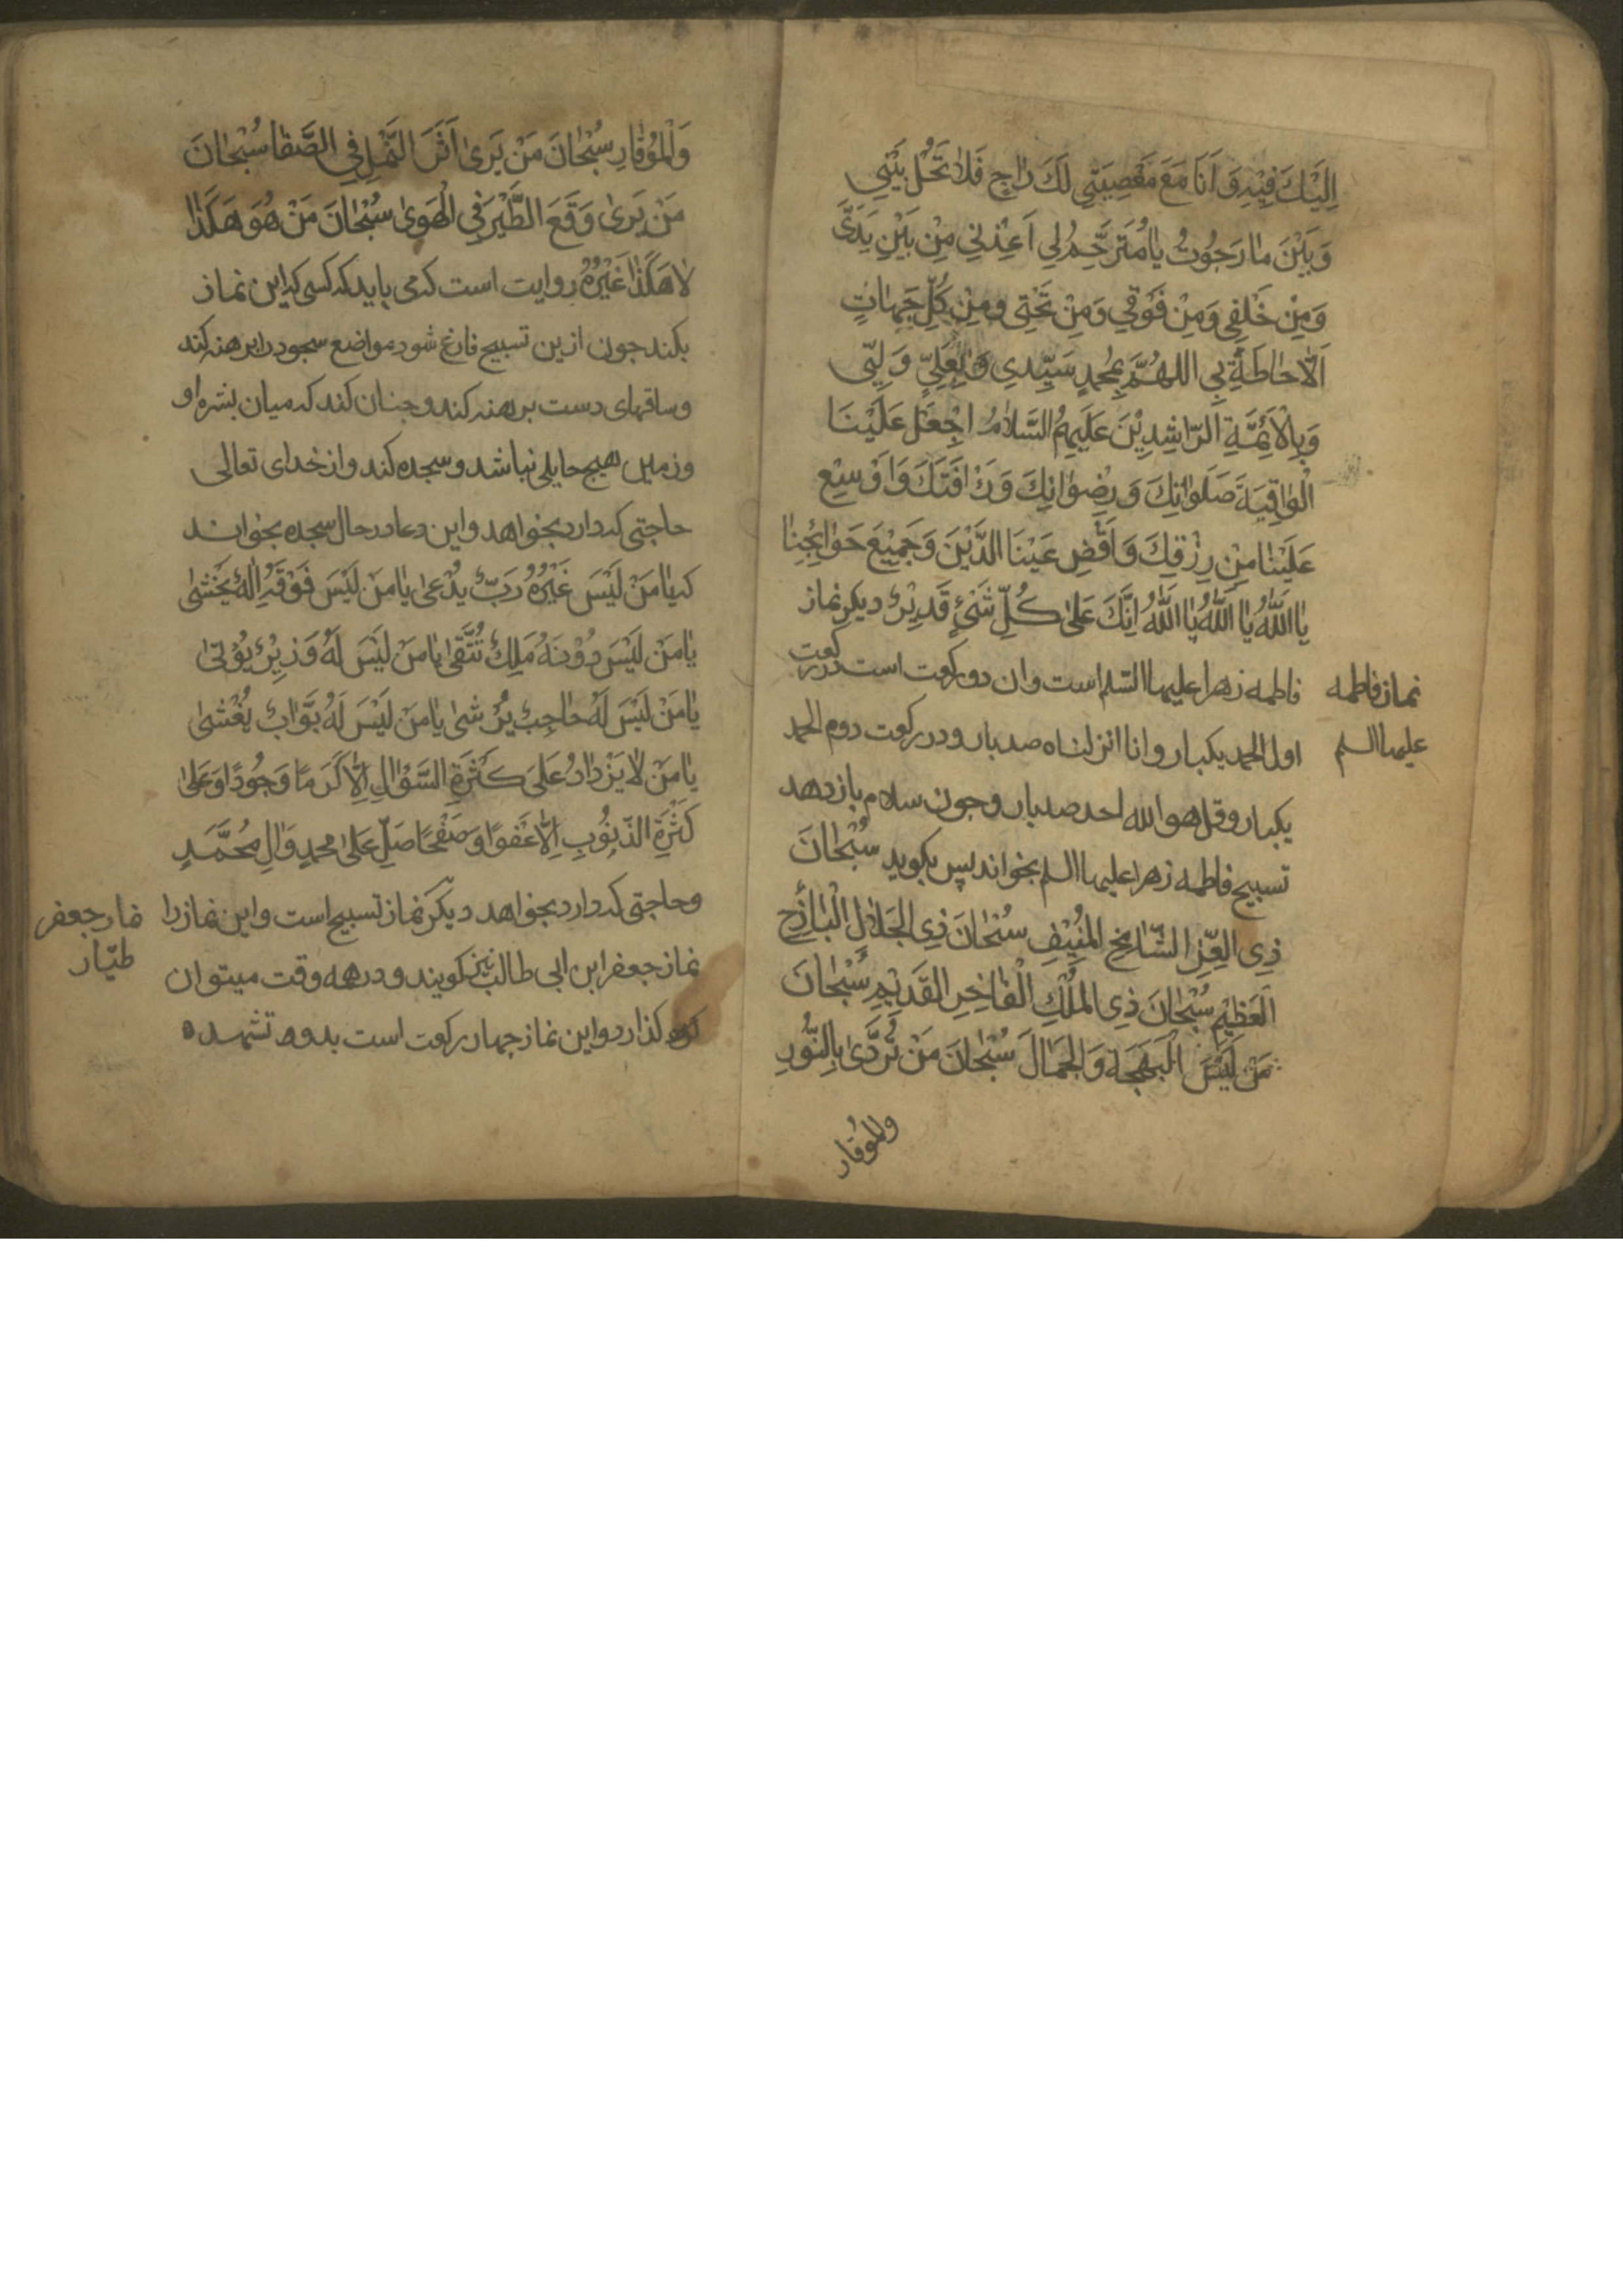 اِلَيْكَ فِيْهِ وَ اَنَا مَعَ مَعْصِيَتِي لَكَ رٰاجٍ فَلاٰ تَحُلْ بَيْنِي
وَبَيْنَ مٰا رَجَوْتُ يٰا مُتَرَحِّمُ لِي اَعِذْنِي مِنْ بَيْنِ يَدَيَّ
وَمِنْ خَلْفِي وَمِنْ فَوْقِي وَمِنْ تَحْتِي ومِنْ كُلِّ جَهٰاتٍ
اَلْاِحٰاطَةِ بِي اللهُمَّ بِمُحمدٍ سَيِّدِي وَبِعَلِيٍّ وَلِيّی
وَبِالْاَئِمَّةِ الرّٰاشِدِيْنَ عَلَيهِمُ السَّلاٰمُ اجْعَلْ عَلَيْنَا
الْوٰاقِيَةَ صَلَوٰاتِكَ وَرِضْوٰانِكَ وَرَافَتَكَ وَاَوْسِعْ
عَلَيْنٰا مِنْ رِزْقِكَ وَاَقْضِ عَيْنَا الدَّيْنَ وَجَمِيْعَ حَوٰائِجُنٰا
يٰا اللَّهُ يٰا اللَّهُ يٰا اللَّهُ اِنَّكَ عَلىٰ كُلِّ شَىْءٍ قَدِيْرٌ ديكر نماز
نماز فاطمه
عليها السلم
فاطمه زهرا عليها السّلم است وان دو ركعت است در ركعت
اول الحمد يكبار وانا انزلناه صد بار ودر ركعت دوم الحمد
يكبار وقل هو الله احد صد بار وجون سلام باز دهد
تسبيح فاطمه زهرا عليها السلم بخواند پس بكويد سُبْحٰانَ
ذِی العِّزِ الشّٰامِخِ المُنِيْفِ سُبْحٰانَ ذِی الجَلاٰلِ الْبٰاذِخِ
الْعَظِيْمِ سُبْحٰانَ ذِی المُلْكِ الْفٰاخِرِ القَدِيْمِ سُبْحٰانَ
مَنْ لَبِسَ الْبَهْجَةَ وَالْجَمٰالَ سُبْحٰانَ مَنْ تَرَدَّىٰ بِالنُّورِ
والوُقار
وَالْوُقٰارِ سُبْحٰانَ مَنْ يَرىٰ اَثَرَ النَّمْلِ فِي الصَّفٰا سُبْحٰانَ
مَنْ يَرىٰ وَقَعَ الطَّيْرِ فِي الْهَوىٰ سُبْحٰانَ مَنْ هُوَ هٰكَذٰا
لاٰ هٰكَذٰا غَيْرُهُ روايت است كه مى بايد كه كسى كه اين نماز
بكند جون ازين تسبيح فارغ شود مواضع سجود را برهنه كند
وساقهاى دست برهنه كند وجنان كند كه ميان بشره او
وزمين هيج حايلى نباشد وسجده كند واز خداى تعالى
حاجتى كه دارد بخواهد واين دعا در حال سجده بخواند
كه يٰا مَنْ لَيْسَ غَيْرُهُ رَبٌّ يُدْعىٰ يٰا مَنْ لَيْسَ فَوْقَهِ اِلٰهٌ يَخْشىٰ
يٰا مَنْ لَيْسَ دُوْنَهُ مَلِكٌ تُتَّقىٰ يٰا مَنْ لَيْسَ لَهُ وَزِيْرٌ يُوْتىٰ
يٰا مَنْ لَيْسَ لَهُ حٰاجِبٌ يُرْشىٰ يٰا مَنْ لَيْسَ لَهُ بَوَّابٌ يُغْشىٰ
يٰا مَنْ لاٰ يَزْدٰادُ عَلىَ كَثْرَةِ السَّؤٰالِ اِلّٰا كَرَمًا وَجُودًا وَعَلىٰ
كَثْرَةِ الذّنُوْبِ اِلّٰا عَفوًا وَصَفْحًا صَلِّ عَلىٰ محمدٍ وَاٰلِ مُحَمَّدٍ
وحاجتى كه دارد بخواهد ديكر نماز تسبيح است واين نماز را
نماز جعفر
طيّار
نماز جعفر ابن ابى طالب نيز كويند ودر همه وقت ميتوان
كذارد واين نماز جهار ركعت است بدو تشهد